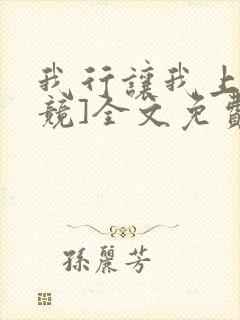 我行讓我上
競]全文免費
孫麗芳